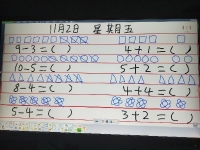 11月2日 星期五
9-3=( ) 4+1=( )
10-5=( ) 5+2=( )
8-4=( ) 4+4=( )
5-4=( ) 3+2=( )